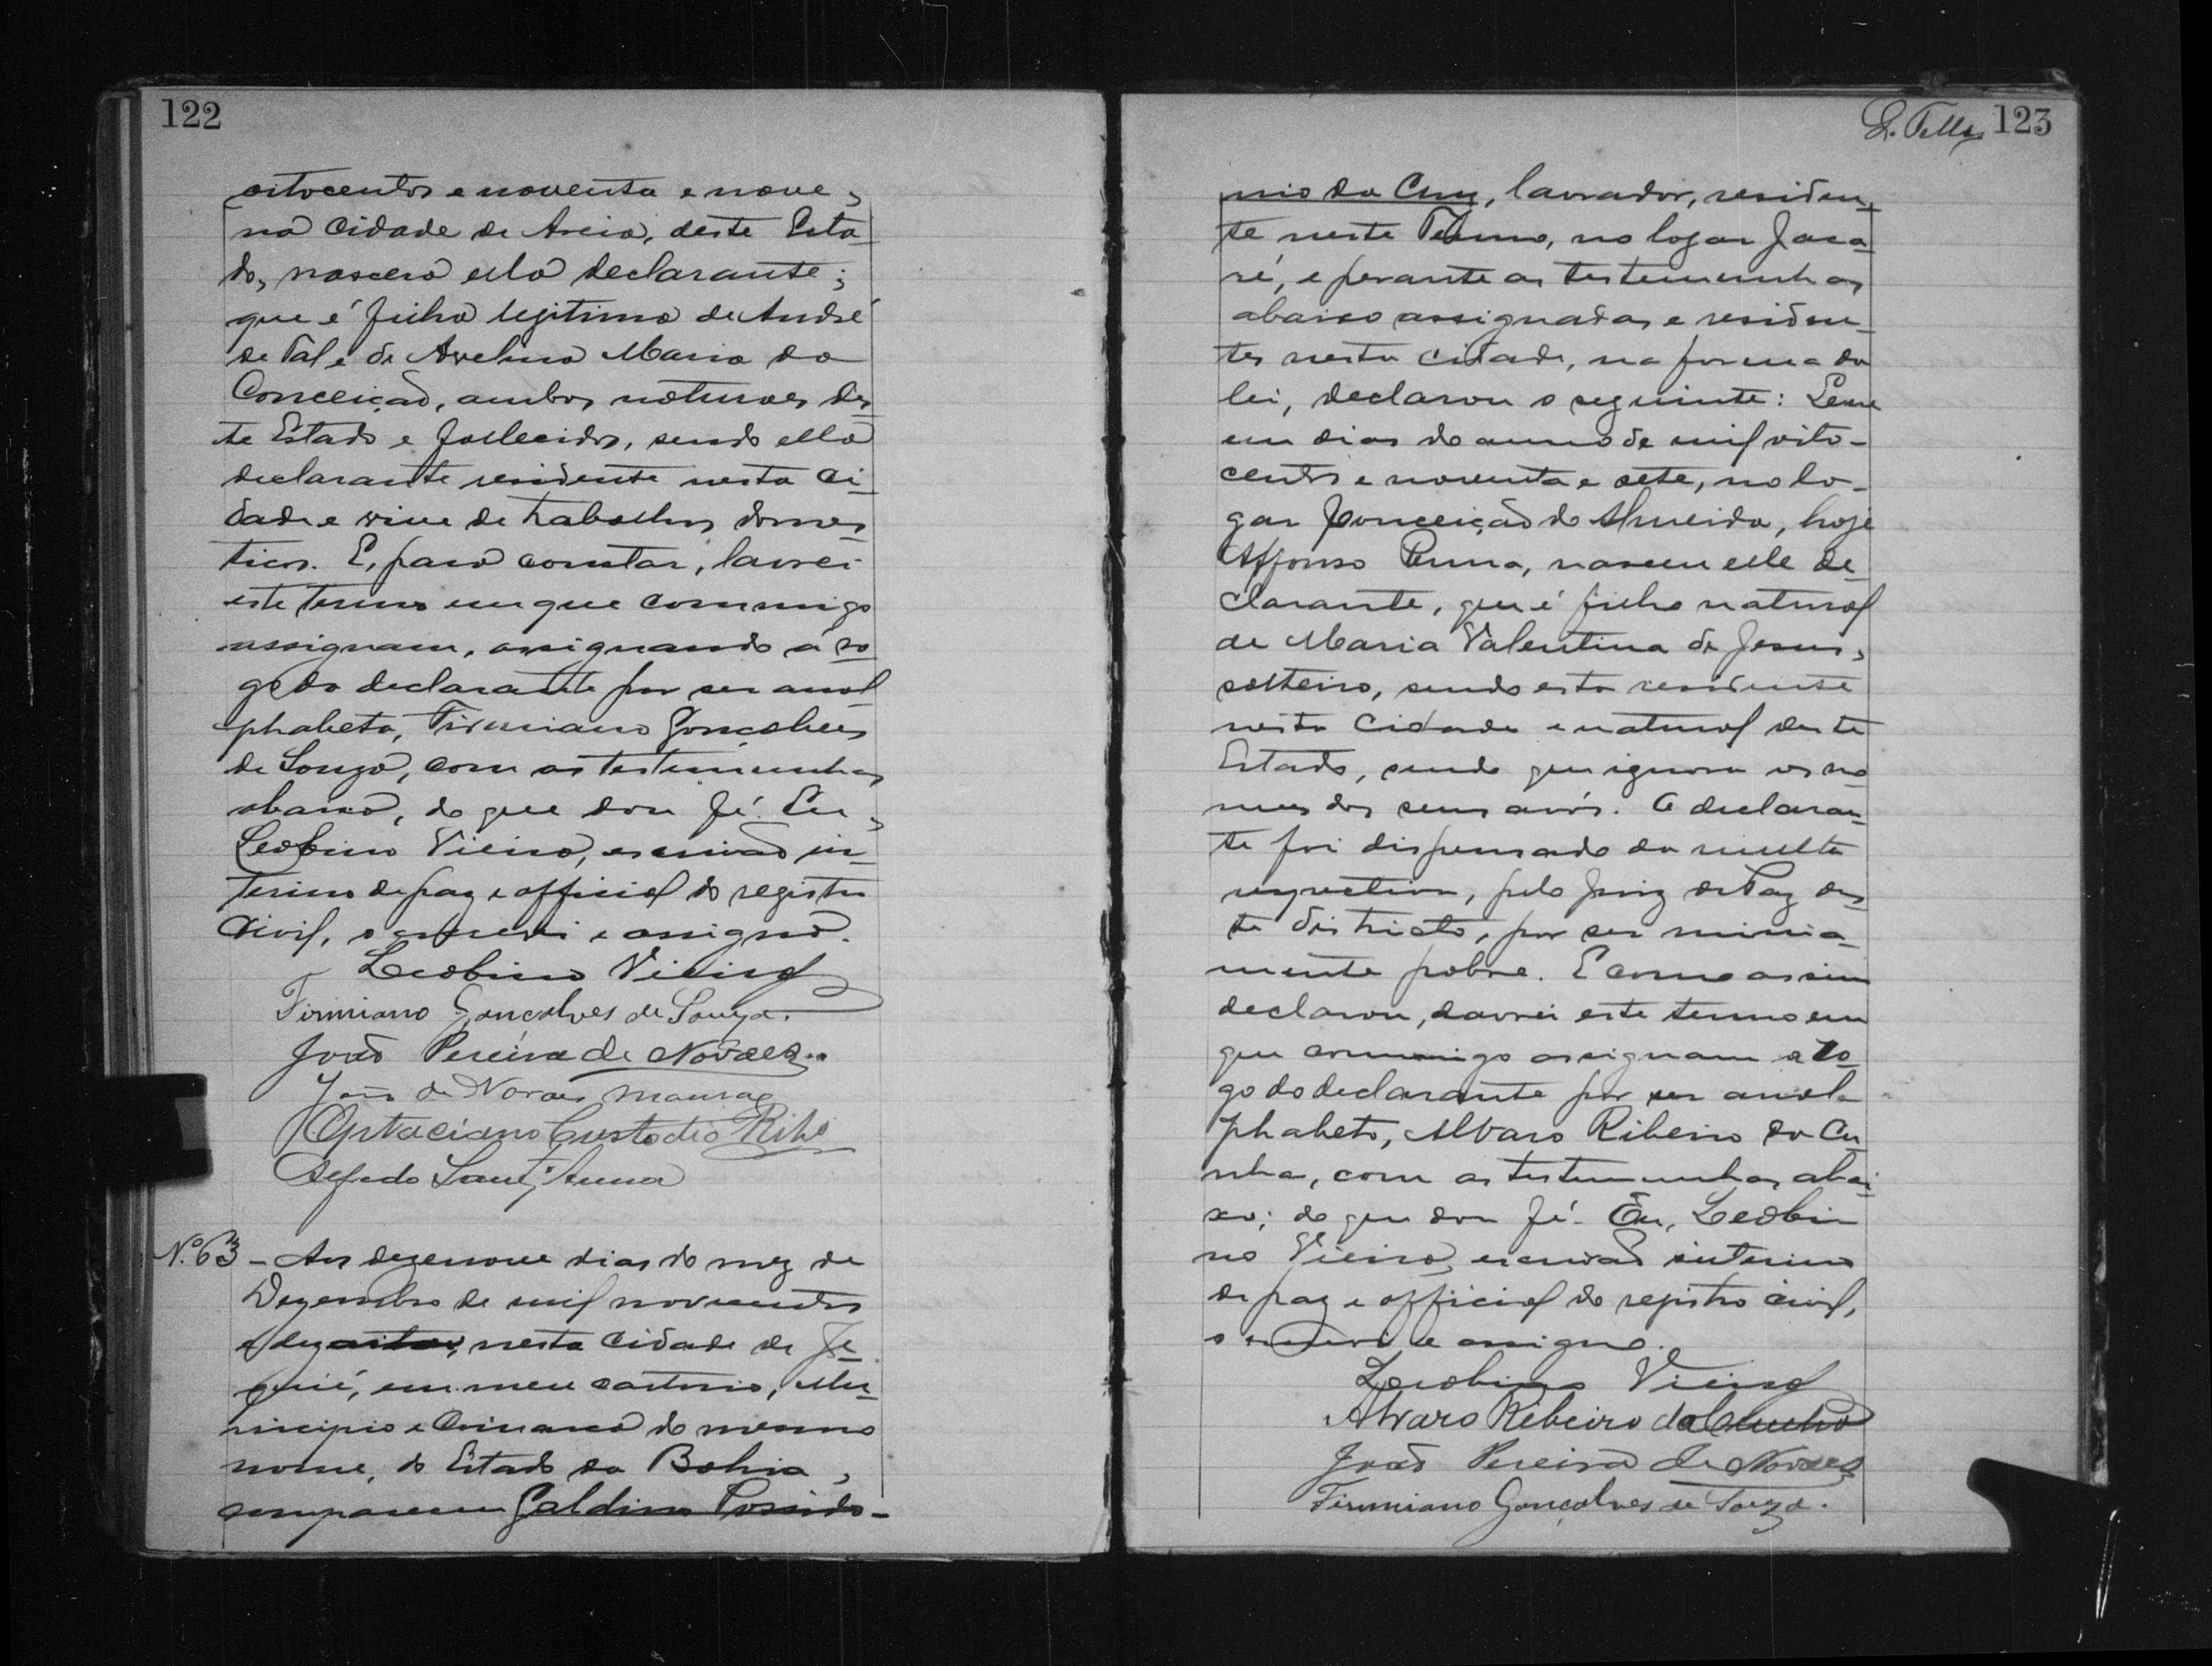 122
oitocentos e noventa e nove,
na Cidade de Areia, deste Esta-
do, nascera ella declarante;
que é filha legitima de André
de Tal e de Avelina Maria da
Conceição, ambos naturaes des-
te Estado e fallecidos, sendo ella
declarante residente nesta Ci-
dade e vive de trabalhos domes-
ticos. E, para constar, lavrei
este termo em que commigo
assignam, assignando a ro-
go da declarante por ser anal-
phabeta, Firmiano Gonçalves
de Souza, com as testemunhas
abaixo, do que dou fé. Eu,
Leobino Vieira, escrivão in-
terino de paz e official do registro
Civil, o escrevi e assigno.
Leobino Vieira
Firmiano Gonçalves de Souza.
João Pereira de Novaes
João de Novaes
Optaciano Custodio Ribº
Alfredo Sant'Anna
Nº 63 - Aos dezenove dias do mez de
Dezembro de mil novecentos
e dezoito, nesta Cidade de Je-
quié, em meu cartorio, Mu-
nicipio e Comarca do mesmo
nome, do Estado da Bahia,
compareceu Galdino Possido-
L. Telles 123
nio da Cruz, lavrador, residen-
te neste Termo, no logar Jaca-
ré, e perante as testemunhas
abaixo assignadas e residen-
tes nesta cidade, na forma da
lei, declarou o seguinte: Que
em dias do anno de mil oito-
centos e noventa e sete, no lo-
gar Conceição do Almeida, hoje
Affonso Penna, nasceu elle de-
clarante, que é filho natural
de Maria Valentina de Jesus,
solteira, sendo esta residente
nesta Cidade e natural deste
Estado, sendo que ignora os no-
mes dos seus avós. O declaran-
te foi dispensado da multa
respectiva, pelo Juiz de Paz des-
te districto, por ser miseria-
mente pobre. E como assim
declarou, lavrei este termo em
que commigo assignam a ro-
go do declarante por ser anal-
phabeto, Alvaro Ribeiro da Cu-
nha, com as testemunhas abai-
xo; do que dou fé. Eu, Leobi-
no Vieira, escrivão interino
de paz e official do registro civil,
o escrevi e assigno.
Leobino Vieira
Alvaro Ribeiro da Cunha
João Pereira de Novaes
Firmiano Gonçalves de Souza.